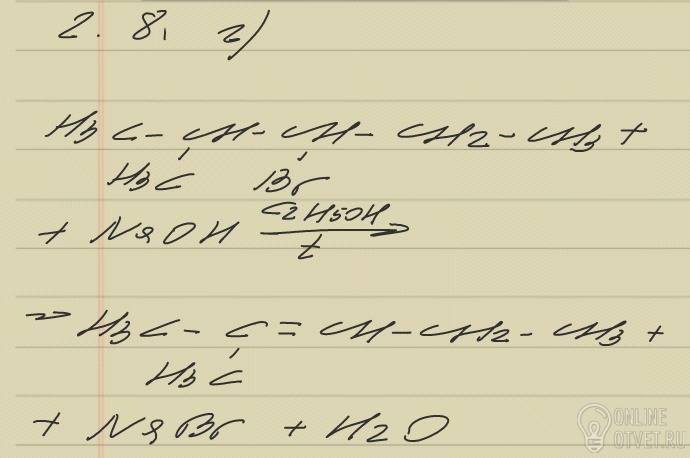 2. 8. г)
H3C - CH - CH - CH2 - CH3 +
H3C Br
+ NaOH C2H5OH
t
→ H3C - C = CH - CH2 - CH3 +
H3C
+ NaBr + H2O
ONLINE
OTVET.RU